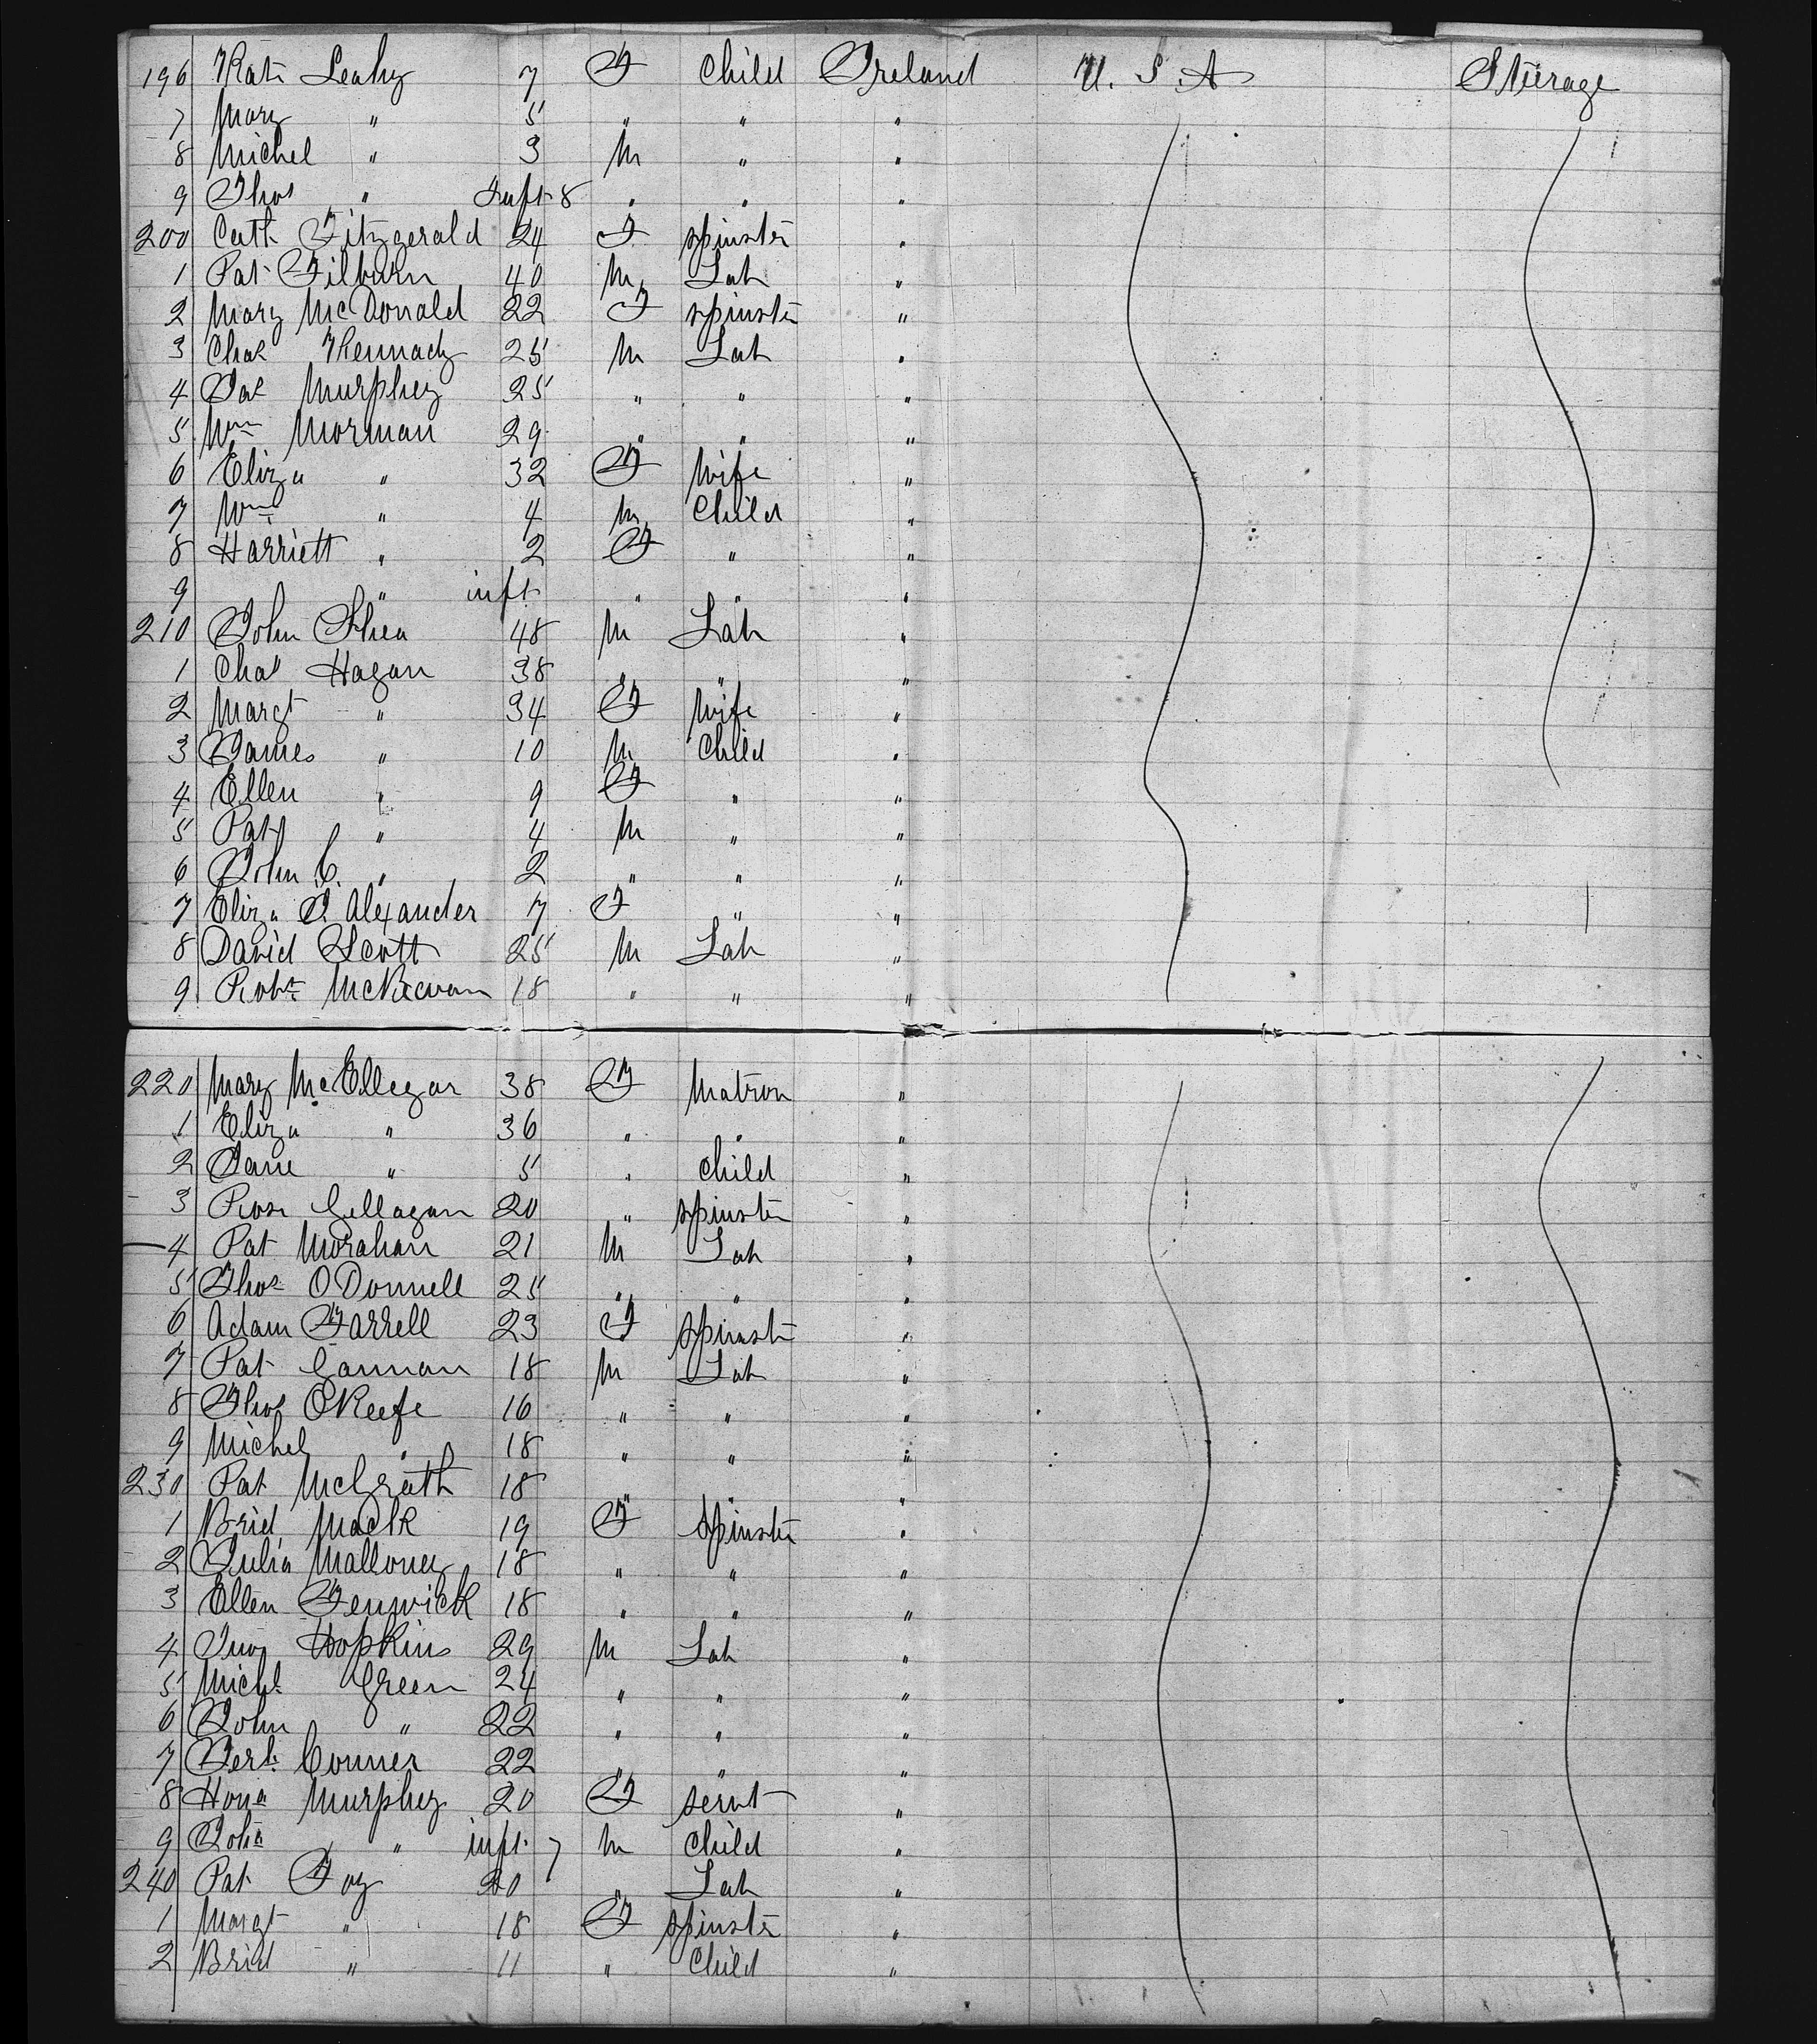 196 Kate Leahy 7 F Child Ireland U. S. A Steerage
7 Mary " 5 " " "
8 Michel " 3 M " "
9 Thos " Inft 8 " " "
200 Cath Fitzgerald 24 F spinster "
1 Pat Filburn 40 M Lab "
2 Mary McDonald 22 F spinster "
3 Chas Kennady 25 M Lab "
4 Jas Murphey 25 " " "
5 Wm Morman 29 " " "
6 Eliza " 32 F Wife "
7 Wm " 4 M Child "
8 Harriett " 2 F " "
9 " inft " " "
210 John Shea 48 M Lab "
1 Chas Hagan 38 " " "
2 Margt " 34 F Wife "
3 James " 10 M Child "
4 Ellen " 9 F " "
5 Pat " 4 M " "
6 John C. " 2 " " "
7 Eliza J. Alexander 17 F " "
8 David Scott 25 M Lab "
9 Robt 18 " " "
220 Mary McEllegar 38 F Matron "
1 Eliza " 36 " " "
2 Jane " 5 " Child "
3 Rose Gellagan 20 " spinster "
4 Pat Morahan 21 M Lab "
5 Thos ODonnell 25 " " "
6 Adam Farrell 23 F spinster "
7 Pat Gannan 18 M Lab "
8 Thos OKeefe 16 " " "
9 Michel " 18 " " "
230 Pat McGrath 18 " " "
1 Brid Mack 19 F spinster "
2 Julia Malloney 18 " " "
3 Ellen Fenwick 18 " " "
4 Jno Hopkins 29 M Lab "
5 Michl Green 24 " " "
6 John " 22 " " "
7 Conner 22 " " "
8 Hona Murphey 20 F servt "
9 John " inft 7 M Child "
240 Pat Foy 20 " Lab "
1 Margt " 18 F spinster "
2 Brid " 11 " Child "